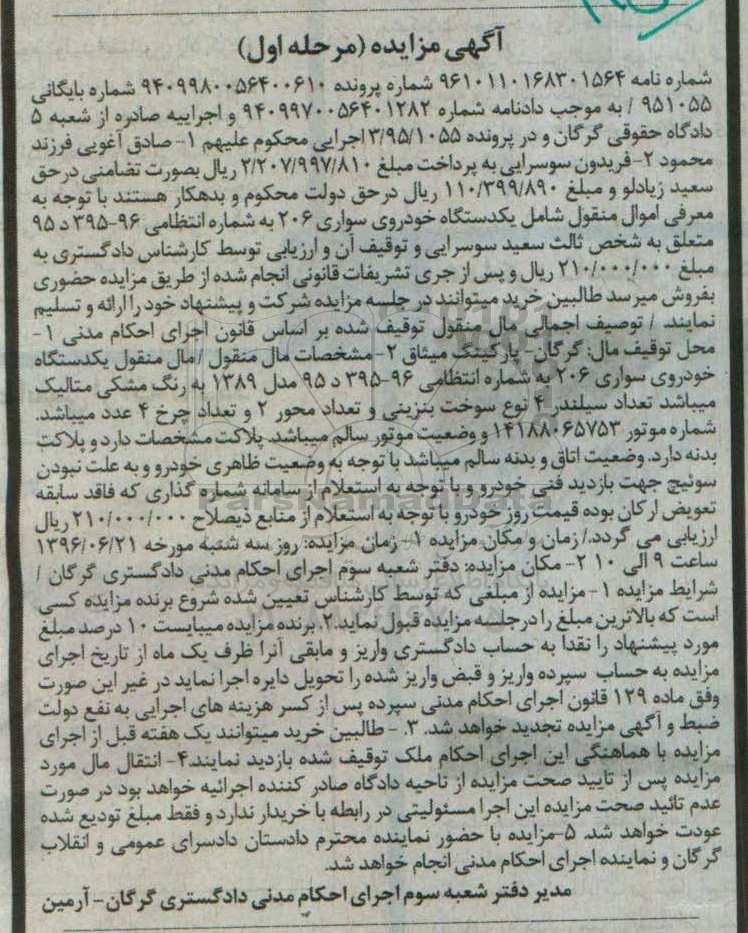 آگهی مزایده (مرحله اول)
شماره نامه ۹۶۱۰۱۱۰۱۶۸۳۰۱۵۶۴ شماره پرونده ۹۴۰۹۹۸۰۰۵۶۴۰۰۶۱۰ شماره بایگانی
۹۵۱۰۵۵ / به موجب دادنامه شماره ۹۴۰۹۹۷۰۰۵۶۴۰۱۲۸۲ و اجراییه صادره از شعبه ۵
دادگاه حقوقی گرگان و در پرونده ۳/۹۵/۱۰۵۵ اجرایی محکوم علیهم ۱- صادق آغویی فرزند
محمود ۲-فریدون سوسرایی به پرداخت مبلغ ۲/۲۰۷/۹۹۷/۸۱۰ ریال بصورت تضامنی درحق
سعید زیادلو و مبلغ ۱۱۰/۳۹۹/۸۹۰ ریال درحق دولت محکوم و بدهکار هستند با توجه به
معرفی اموال منقول شامل یکدستگاه خودروی سواری ۲۰۶ به شماره انتظامی ۹۶-۳۹۵ د ۹۵
متعلق به شخص ثالث سعید سوسرایی و توقیف آن و ارزیابی توسط کارشناس دادگستری به
مبلغ ۲۱۰/۰۰۰/۰۰۰ ریال و پس از جری تشریفات قانونی انجام شده از طریق مزایده حضوری
بفروش میرسد طالبین خرید میتوانند در جلسه مزایده شرکت و پیشنهاد خود را ارائه و تسلیم
نمایند. / توصیف اجمالی مال منقول توقیف شده بر اساس قانون اجرای احکام مدنی ۱-
محل توقیف مال: گرگان- پارکینگ میثاق ۲- مشخصات مال منقول /مال منقول یکدستگاه
خودروی سواری ۲۰۶ به شماره انتظامی ۹۶-۳۹۵ د ۹۵ مدل ۱۳۸۹ به رنگ مشکی متالیک
میباشد تعداد سیلندر ۴ نوع سوخت بنزینی و تعداد محور ۲ و تعداد چرخ ۴ عدد میباشد.
شماره موتور ۱۴۱۸۸۰۶۵۷۵۳ و وضعیت موتور سالم میباشد. پلاکت مشخصات دارد و پلاکت
بدنه دارد. وضعیت اتاق و بدنه سالم میباشد با توجه به وضعیت ظاهری خودرو و به علت نبودن
سوئیچ جهت بازدید فنی خودرو و با توجه به استعلام از سامانه شماره گذاری که فاقد سابقه
تعویض ارکان بوده قیمت روز خودرو با توجه به استعلام از منابع ذیصلاح ۲۱۰/۰۰۰/۰۰۰ ریال
ارزیابی می گردد./ زمان و مکان مزایده ۱- زمان مزایده: روز سه شنبه مورخه ۱۳۹۶/۰۶/۲۱
ساعت ۹ الی ۱۰ ۲- مکان مزایده: دفتر شعبه سوم اجرای احکام مدنی دادگستری گرگان /
شرایط مزایده ۱- مزایده از مبلغی که توسط کارشناس تعیین شده شروع برنده مزایده کسی
است که بالاترین مبلغ را درجلسه مزایده قبول نماید.۲. برنده مزایده میبایست ۱۰ درصد مبلغ
مورد پیشنهاد را نقدا به حساب دادگستری واریز و مابقی آنرا ظرف یک ماه از تاریخ اجرای
مزایده به حساب سپرده واریز و قبض واریز شده را تحویل دایره اجرا نماید در غیر این صورت
وفق ماده ۱۲۹ قانون اجرای احکام مدنی سپرده پس از کسر هزینه های اجرایی به نفع دولت
ضبط و آگهی مزایده تجدید خواهد شد. ۳. - طالبین خرید میتوانند یک هفته قبل از اجرای
مزایده با هماهنگی این اجرای احکام ملک توقیف شده بازدید نمایند.۴- انتقال مال مورد
مزایده پس از تایید صحت مزایده از ناحیه دادگاه صادر کننده اجرائیه خواهد بود در صورت
عدم تائید صحت مزایده این اجرا مسئولیتی در رابطه با خریدار ندارد و فقط مبلغ تودیع شده
عودت خواهد شد. ۵-مزایده با حضور نماینده محترم دادستان دادسرای عمومی و انقلاب
گرگان و نماینده اجرای احکام مدنی انجام خواهد شد.
مدیر دفتر شعبه سوم اجرای احکام مدنی دادگستری گرگان- آرمین